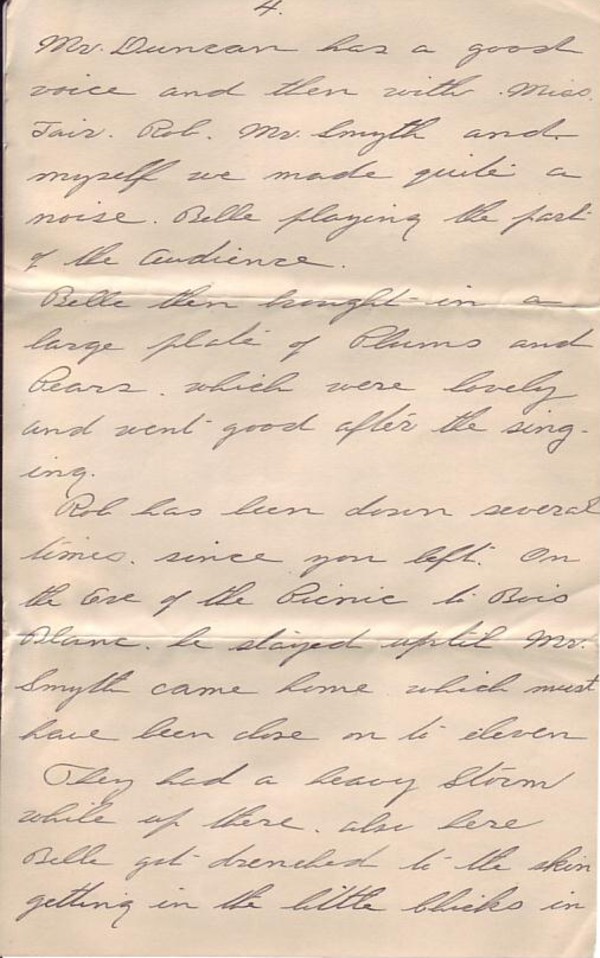 4.
Mr. Duncan has a good
voice and then with Miss.
Tair. Rob. Mr. Smyth and.
myself we made quite a
noise. Belle playing the part
of the Audience.
Belle then brought in a
large plate of Plums and
Pears. which were lovely
and went good after the sing-
ing.
Rob has been down several
times. since you left. On
the Eve of the Picnic to Bois
Blanc. he stayed uptil Mr.
Smyth came home which must
have been close on to eleven
They had a heavy Storm
while up there. also here
Belle got drenched to the skin
getting in the little Chicks in